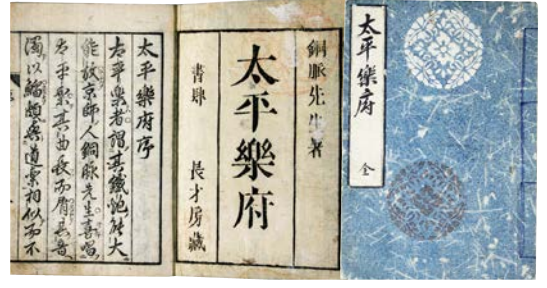 太平樂府
全
銅脉先生著
太平樂府
書肆 長才房藏
太平樂府序
太平樂者謂其鐵炮能大
能放京師人銅脉先生喜唱
太平樂其曲長而屑其音
濁以鰯頗與道樂相似而不